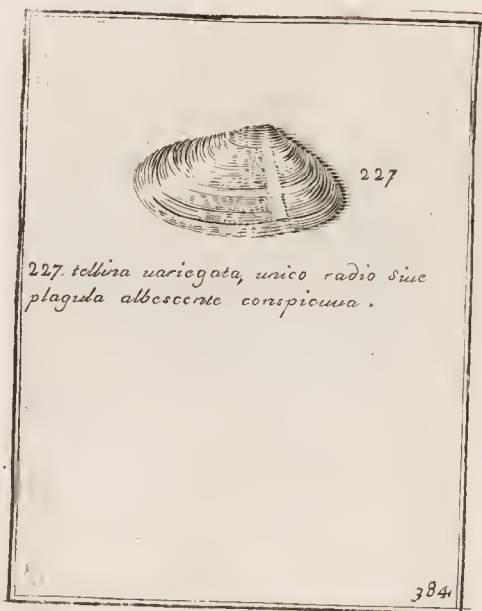 227
227. tellina uariegata, unico radio siue
plagula albescente conspicuua.
384